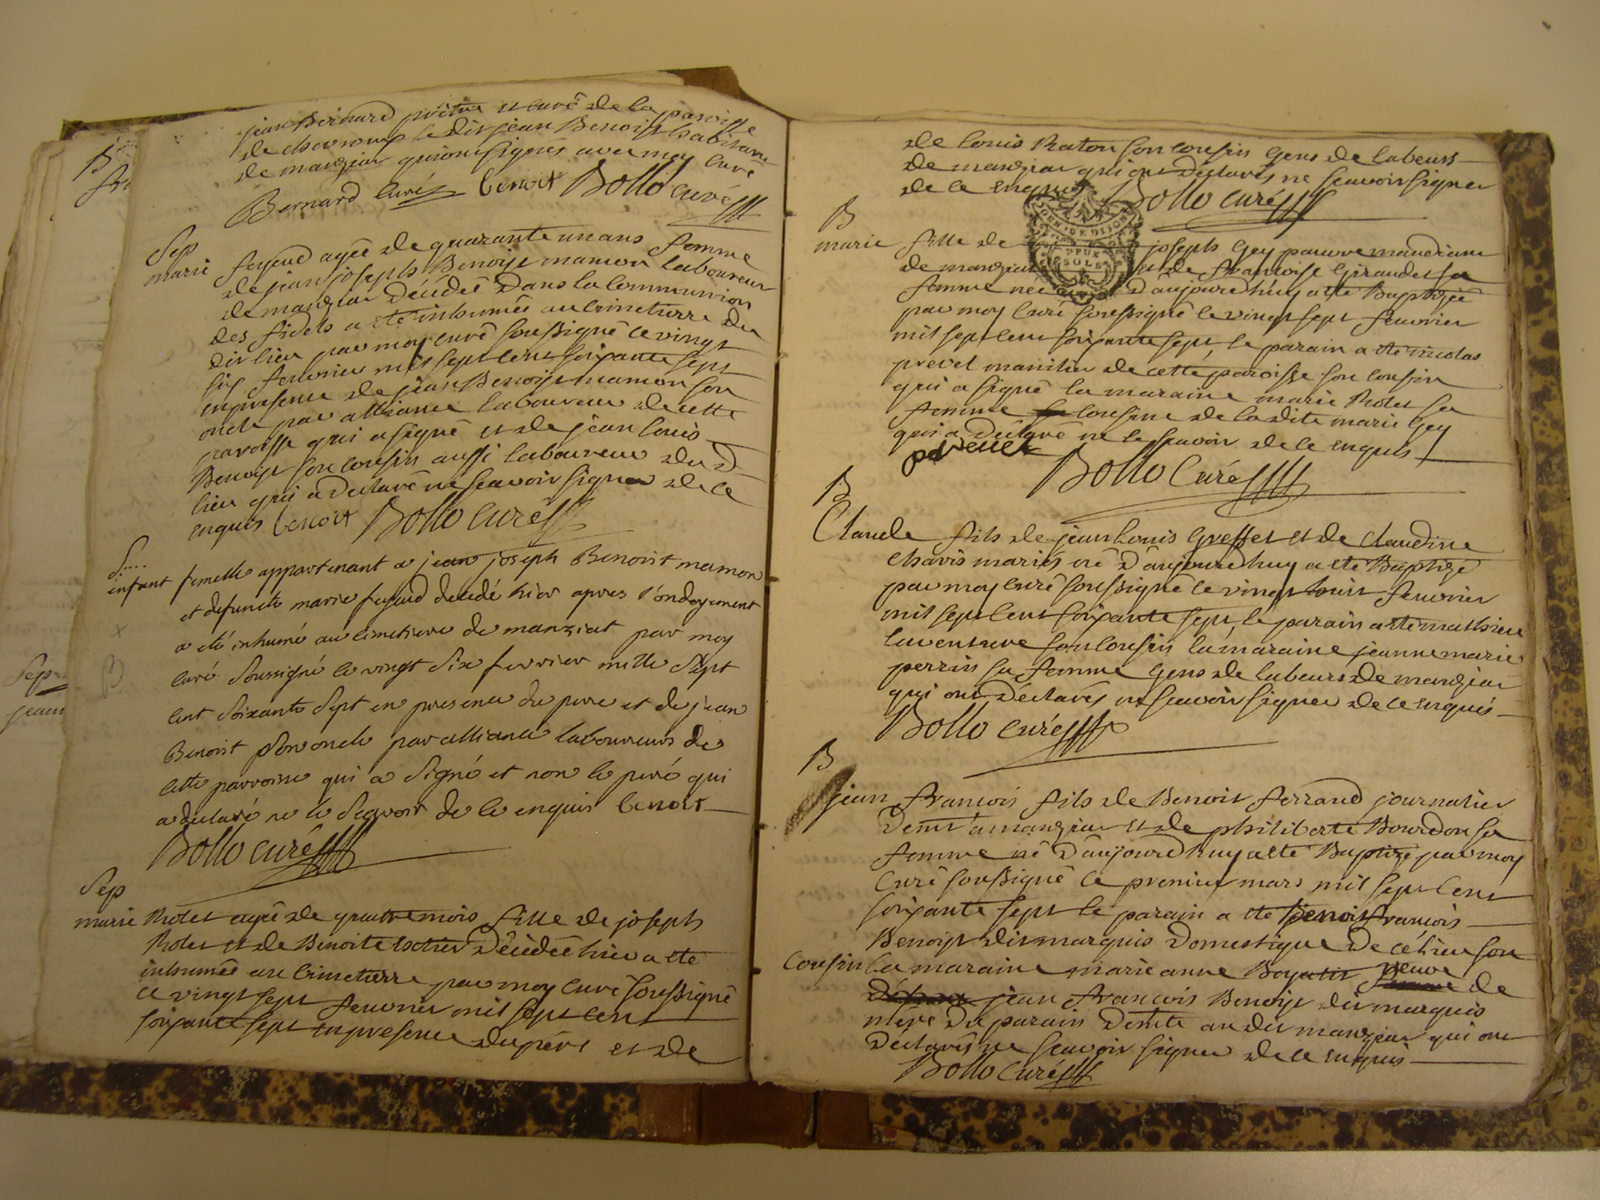 jean Bernard prêtre et curé de la paroisse
de chevroux le dit jean Benoist habitant
de manziat qui ont signés avec moy curé
Bernard curé benoit Bollo curé
Sep
marie feyaud agée de quarante un ans femme
de jean joseph Benoist mamon laboureur
de manziat décédée dans la Communion
des fidels a été inhumée au cimetierre du
dit lieu par moy curé soussigné le vingt
six feuvrier mil sept cent soixante sept
en presence de jean Benoist mamon son
oncle par alliance laboureur de cette
paroisse qui a signé et de jean louis
Benoist son cousin aussi laboureur du d
lieu qui a declaré ne sçavoir signer de ce
enquis benoit Bollo curé
S....
enfant femelle appartenant a jean joseph Benoist mamon
et defuncte marie feyaud decedé hier apres l'ondoyement
a été inhumé au cimetiere de manziat par moy
curé soussigné le vingt six fevrier mille sept
cent soixante sept en presence du pere et de jean
Benoist son oncle par alliance laboureurs de
cette parroisse qui a signé et non le peré qui
a declaré ne le sçavoir de ce enquis benoit
Bollo curé
Sep
marie Rolet agée de quattre mois fille de joseph
Rolet et de Benoite décédée hier a été
inhumée au cimetierre par moy curé soussigné
le vingt sept feuvrier mil sept cent
soixante sept en presence du pére et de
Sep
jean
B
de louis Raton son cousin gens de labeurs
de manziat qui ont déclarés ne sçavoir signer
de ce enquis Bollo curé
GEN. DE DIJON
DEUX
SOLS
B
marie fille de joseph Gey pauvre mandiant
de manziat et de françoise Giraudet sa
femme née d'aujourd'huy a été Baptizée
par moy curé soussigné le vingt sept feuvrier
mil sept cent soixante sept, le parain a été nicolas
prevel manilier de cette paroisse son cousin
qui a signé la maraine marie Rolet sa
femme cousine de la dite marie Gey
qui a déclaré ne le sçavoir de ce enquis
prevel
Bollo Curé
B
Claude fils de jean louis Greffet et de claudine
chavis mariés né d'aujourd'huy a été Baptizé
par moy curé soussigné le vingt huit feuvrier
mil sept cent soixante sept, le parain a été mathieu
laventure son cousin la maraine jeanne marie
perrin sa femme gens de labeurs de manziat
qui ont declarés ne sçavoir signer de ce enquis
Bollo curé
B
jean françois fils de Benoist ferrand journalier
demt a manziat et de philiberte Bourdon sa
femme né d'aujourd'huy a été Baptizé par moy
Curé soussigné le premier mars mil sept cent
soixante sept le parain a été Benoist françois
Benoist dit marquis domestique de ce lieu son
cousin la maraine marie anne Boyatit veuve de
jean françois Benoist dit marquis
mére du parain demte au dit manziat qui ont
déclarés ne sçavoir signer de ce enquis
Bollo curé